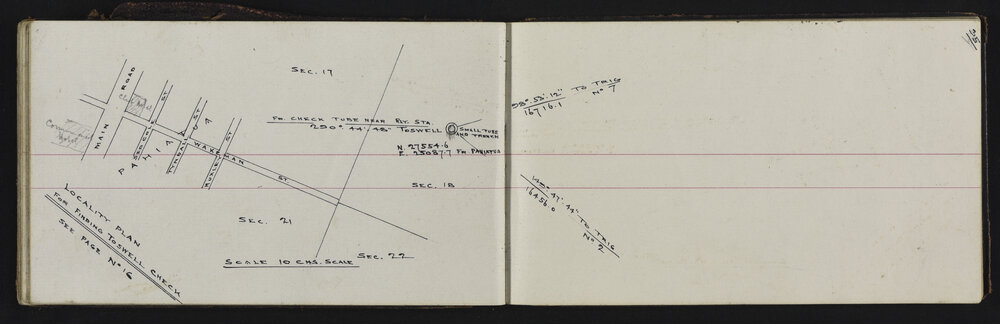 SEC. 17
MAIN ROAD
SERVICE ST
PAHIATUA
TYNDALL ST
HUXLEY ST
WAKEMAN ST
FM CHECK TUBE NEAR RLY. STA.
290°. 44'. 48" TOSWELL
SMALL TUBE
AND TRENCH
N. 27554.6
E. 25087.7 FM PAHIATUA
SEC. 18
SEC. 21
SEC. 22
SCALE 10 CHS. SCALE
LOCALITY PLAN
FOR FINDING TOSWELL CHECK
SEE PAGE No 16
53'. 12" TO TRIG
16716.1 No 7
47'. 44" TO TRIG
16456.0 No 2